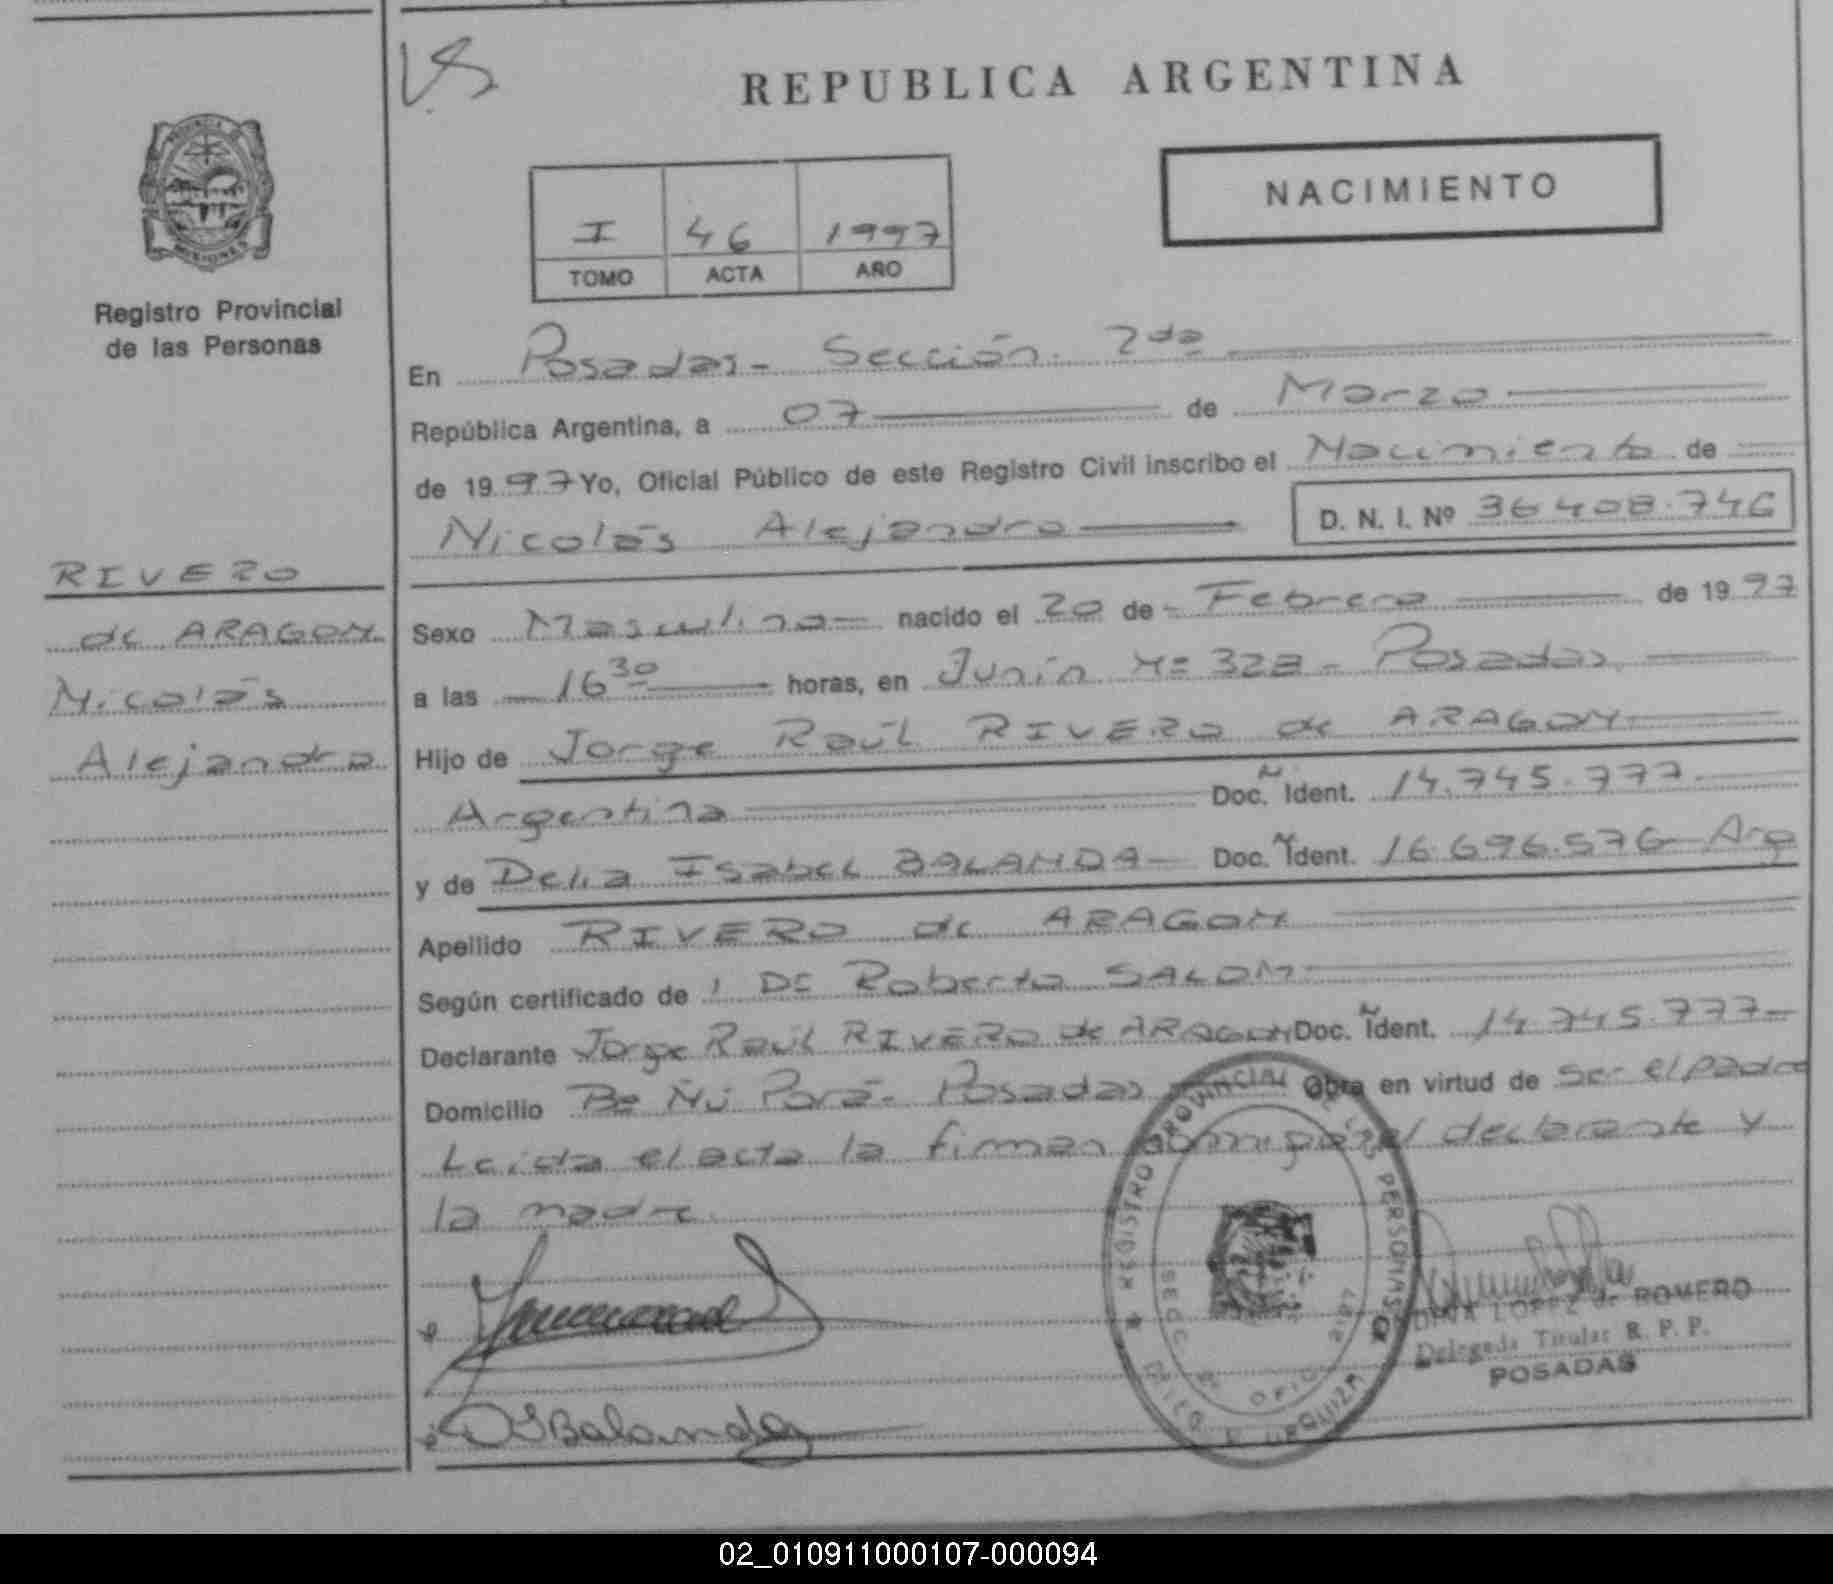 REPUBLICA ARGENTINA
NACIMIENTO
I 46 1997
TOMO ACTA AÑO
MISIONES
Registro Provincial
de las Personas
RIVERO
de ARAGON
Nicolás
Alejandro
En Posadas- Sección 2da
República Argentina, a 07 de Marzo
de 1997 Yo, Oficial Público de este Registro Civil inscribo el Nacimiento de
Nicolás Alejandro D. N. I. Nº 36408.746
Sexo Masculino nacido el 20 de Febrero de 1997
a las 16 30 horas, en Junín Nº 328 - Posadas
Hijo de Jorge Raúl RIVERO de ARAGON
Argentina Doc. Ident. 14.745.777
y de Delia Isabel BALANDA Doc. Ident. 16.696.576 Arg
Apellido RIVERO de ARAGON
Según certificado de Roberto SALOM
Declarante Jorge Raúl RIVERO de ARAGON Doc. Ident. 14.745.777
Domicilio Bº Ñú Porá- Posadas Obra en virtud de ser el padre
Leida el acta la firman conmigo el declarante y
la madre.
DIBalanda
REGISTRO PROVINCIAL DE LAS PERSONAS
DINA LOPEZ de ROMERO
Delegada Titular R. P. P.
POSADAS
02_010911000107-000094